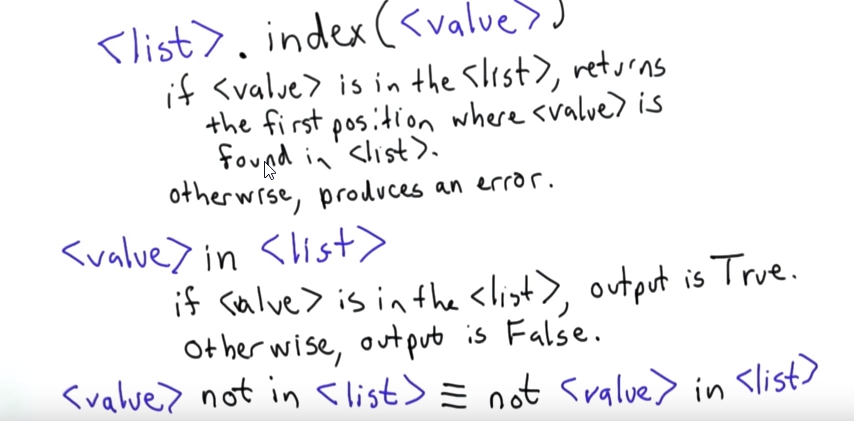 <list>. index(<value>)
if <value> is in the <list>, returns
the first position where <value> is
found in <list>.
otherwise, produces an error.
<value> in <list>
if <value> is in the <list>, output is True.
Otherwise, output is False.
<value> not in <list> ≡ not <value> in <list>